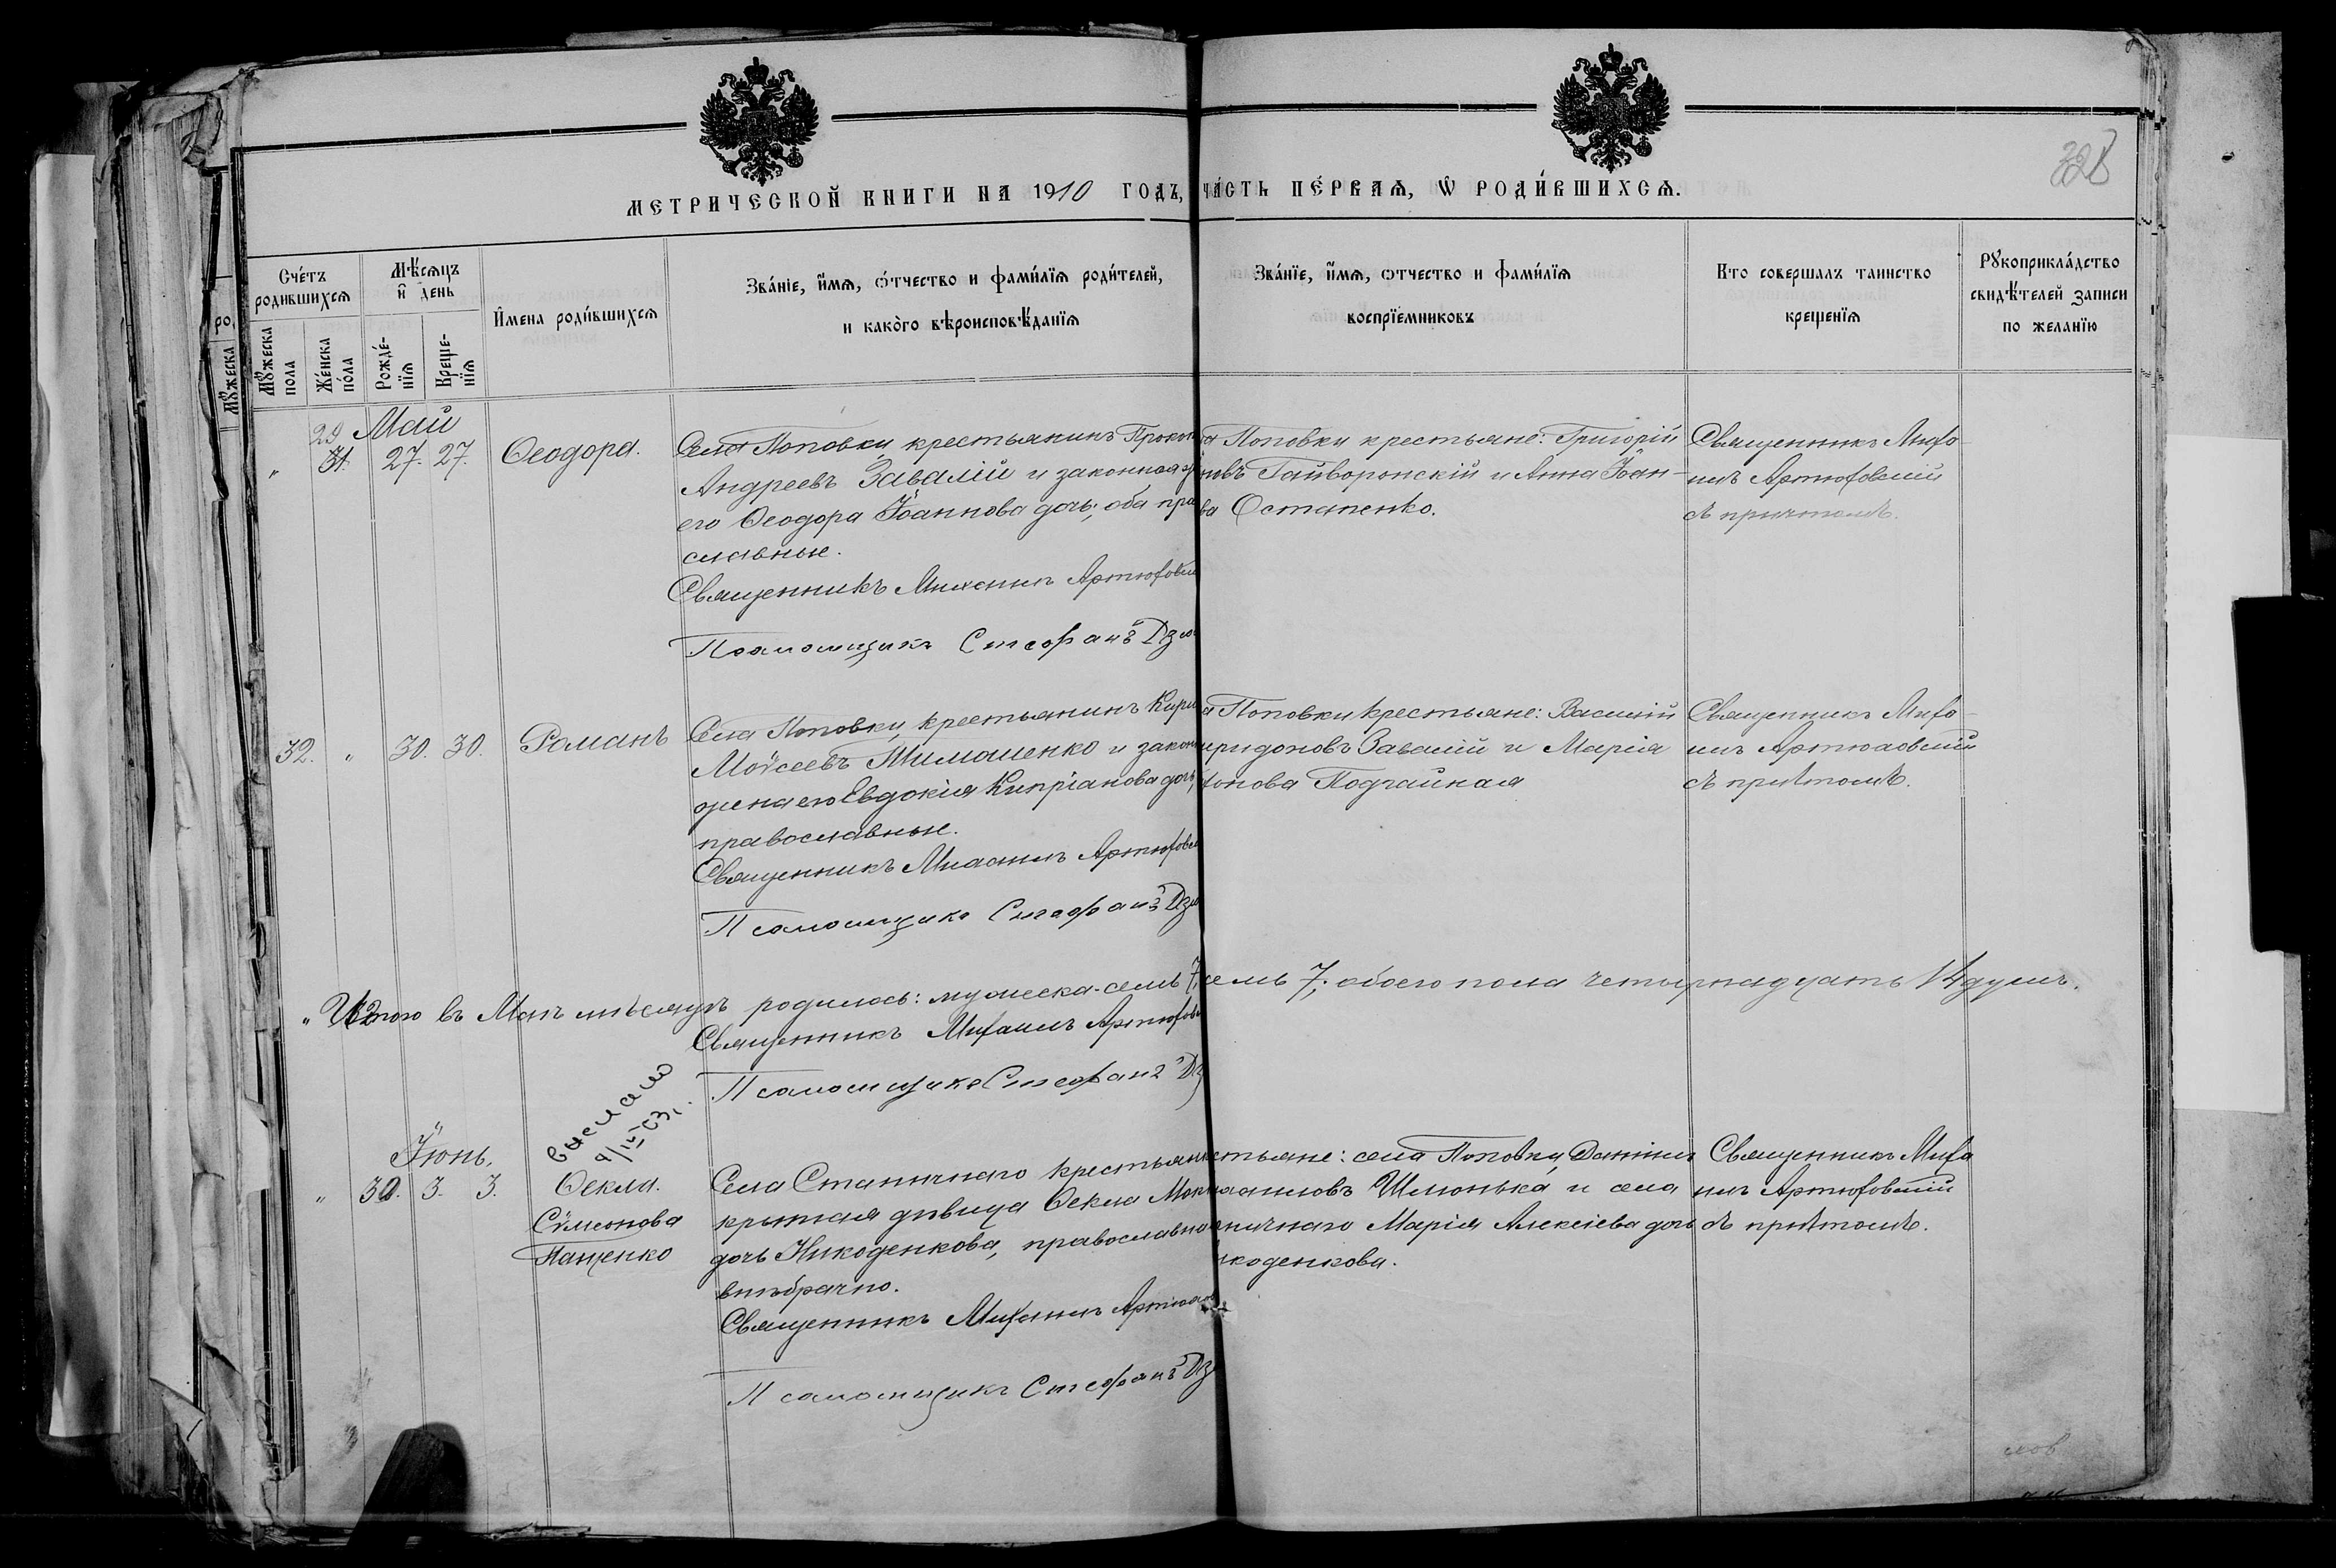 328
МЕТРИЧЕСКОЙ КНИГИ НА 1910 ГОДЪ, ЧА́СТЬ ПЕ́РВАѦ, Ѡ҆ РОДИ́ВШИХСѦ.
Сче́тъ родившихсѧ
Мꙋжеска пола
Же́нска по́ла
Мѣ́сѧцъ и҆ день
Рожде́-нїѧ
Креще-нїѧ
И҆мена роди́вшихсѧ
Зва́нїе, и҆́мѧ, ѻ҆́тчество и фами́лїѧ роди́телей,
и како́го вѣроисповѣ́данїѧ
Зва́нїе, и҆́мѧ, ѻтчество и фами́лїѧ
воспрїемниковъ
Кто совершалъ таинство
крещенїѧ
Рꙋкоприкла́дство
свидѣ́телей записи
по желанїю
ро
Мꙋжеска
Май
29
„ 31. 27. 27. Ѳеодора.
Села Поповки, крестьянинъ Прокоп
Андреевъ Завалій и законная ж
его Ѳеодора Іоаннова дочь; оба пра
славные.
Священникъ Михаилъ Артюхов
Псаломщикъ Стефанъ Дзю
а Поповки крестьяне: Григорій
новъ Гайворонскій и Анна Іоан-
ва Остапенко.
Священникъ Миха-
илъ Артюховскій
съ причтомъ.
32. „ 30. 30. Романъ
Села Поповки, крестьянинъ Кири
Моѵсеевъ Тимошенко и закон
жена его Евдокія Кипріанова дочь,
православные.
Священникъ Михаилъ Артюхов
Псаломщикъ Стефанъ Дзю
а Поповки крестьяне: Василій
иридоновъ Завалій и Марія
фонова Подчайная
Священникъ Миха-
илъ Артюховскій
съ причтомъ.
„ Итого въ Маѣ мѣсяцѣ родилось: мужеска-семь 7, семь 7; обоего пола четырнадцать 14 душъ.
Священникъ Михаилъ Артюхов
Псаломщикъ Стефанъ Дз
выслано
Іюнь.
„ 30. 3. 3. Ѳекла.
Сѵмеонова
Пащенко
Села Станичнаго крестьян
крытая дѣвица Ѳекла Мок
дочь Никоденкова, православна
внѣбрачно.
Священникъ Михаилъ Артюхов
Псаломщикъ Стефанъ Дз
стьяне: села Поповки, Даніилъ
аиловъ Шлюнька и села
ничнаго Марія Алексіева дочь
икоденкова.
Священникъ Миха
илъ Артюховскій
съ причтомъ.
лов